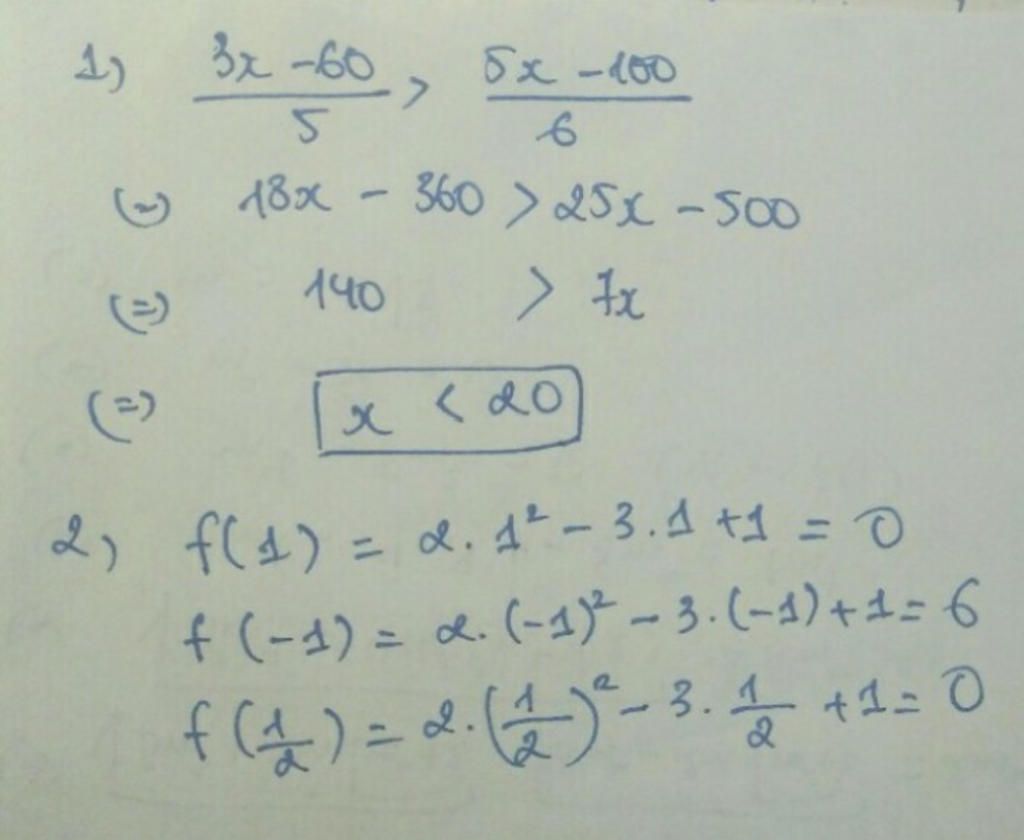 1) (3x - 60)/5 > (5x - 100)/6
(=) 18x - 360 > 25x - 500
(=) 140 > 7x
(=) x < 20
2) f(1) = 2.1² - 3.1 + 1 = 0
f(-1) = 2.(-1)² - 3.(-1) + 1 = 6
f(1/2) = 2.(1/2)² - 3.1/2 + 1 = 0